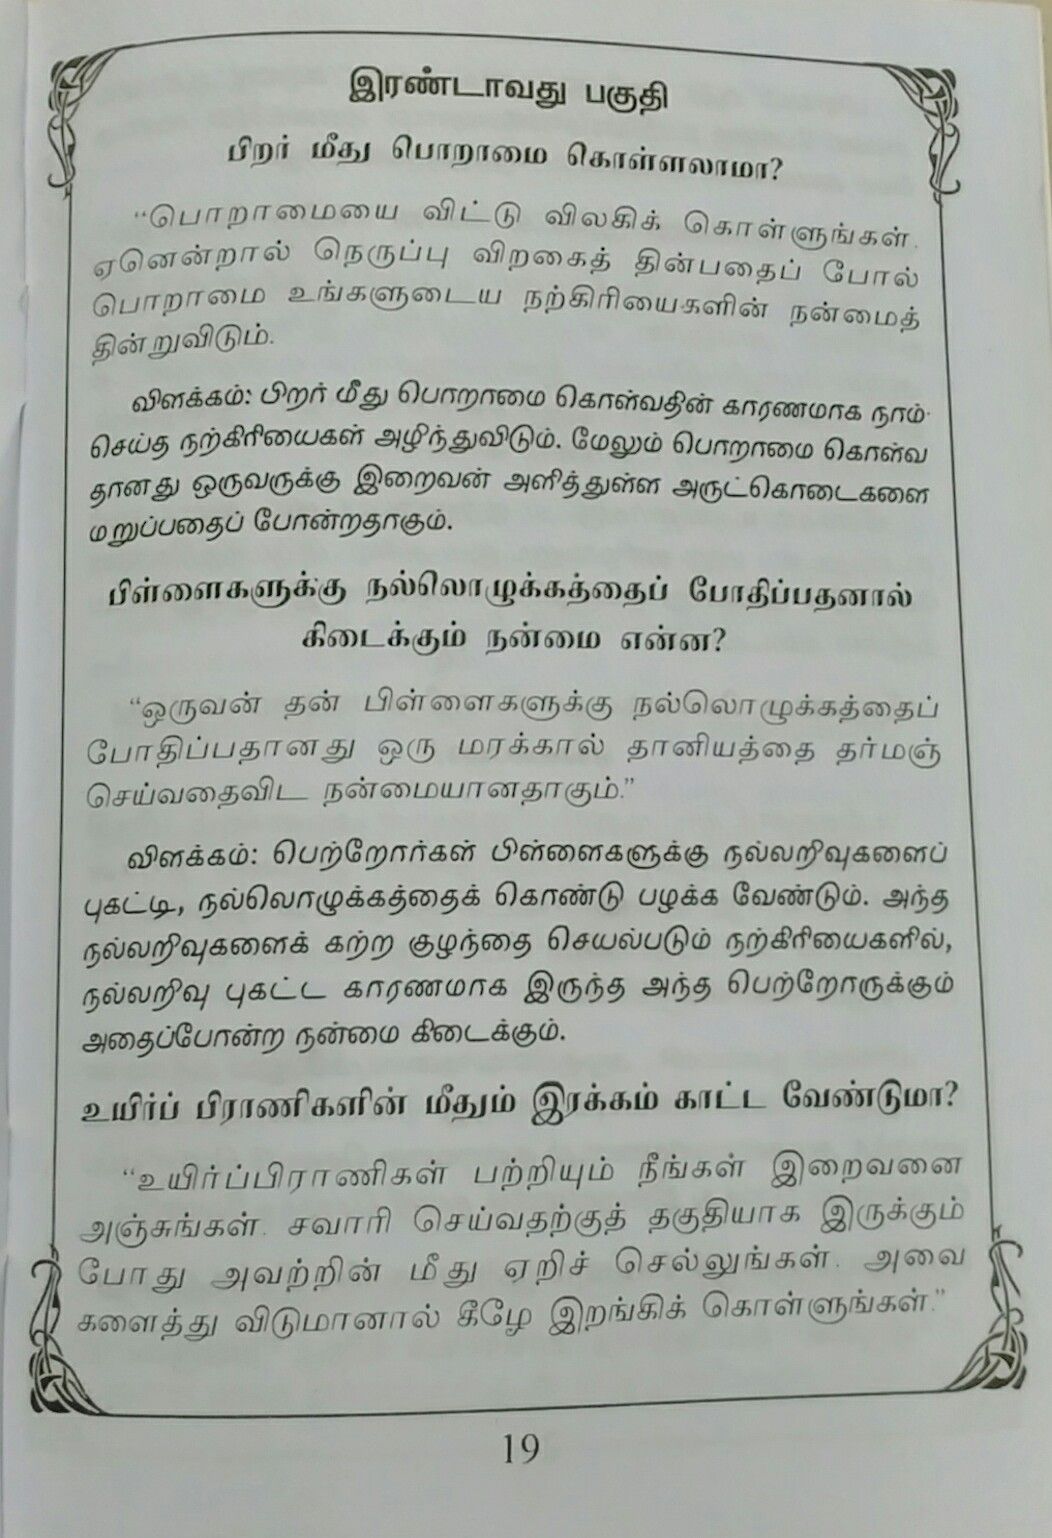 இரண்டாவது பகுதி
பிறர் மீது பொறாமை கொள்ளலாமா?
“பொறாமையை விட்டு விலகிக் கொள்ளுங்கள்.
ஏனென்றால் நெருப்பு விறகைத் தின்பதைப் போல்
பொறாமை உங்களுடைய நற்கிரியைகளின் நன்மைத்
தின்றுவிடும்.
விளக்கம்: பிறர் மீது பொறாமை கொள்வதின் காரணமாக நாம்
செய்த நற்கிரியைகள் அழிந்துவிடும். மேலும் பொறாமை கொள்வ
தானது ஒருவருக்கு இறைவன் அளித்துள்ள அருட்கொடைகளை
மறுப்பதைப் போன்றதாகும்.
பிள்ளைகளுக்கு நல்லொழுக்கத்தைப் போதிப்பதனால்
கிடைக்கும் நன்மை என்ன?
“ஒருவன் தன் பிள்ளைகளுக்கு நல்லொழுக்கத்தைப்
போதிப்பதானது ஒரு மரக்கால் தானியத்தை தர்மஞ்
செய்வதைவிட நன்மையானதாகும்.”
விளக்கம்: பெற்றோர்கள் பிள்ளைகளுக்கு நல்லறிவுகளைப்
புகட்டி, நல்லொழுக்கத்தைக் கொண்டு பழக்க வேண்டும். அந்த
நல்லறிவுகளைக் கற்ற குழந்தை செயல்படும் நற்கிரியைகளில்,
நல்லறிவு புகட்ட காரணமாக இருந்த அந்த பெற்றோருக்கும்
அதைப்போன்ற நன்மை கிடைக்கும்.
உயிர்ப் பிராணிகளின் மீதும் இரக்கம் காட்ட வேண்டுமா?
“உயிர்ப்பிராணிகள் பற்றியும் நீங்கள் இறைவனை
அஞ்சுங்கள். சவாரி செய்வதற்குத் தகுதியாக இருக்கும்
போது அவற்றின் மீது ஏறிச் செல்லுங்கள். அவை
களைத்து விடுமானால் கீழே இறங்கிக் கொள்ளுங்கள்.”
19